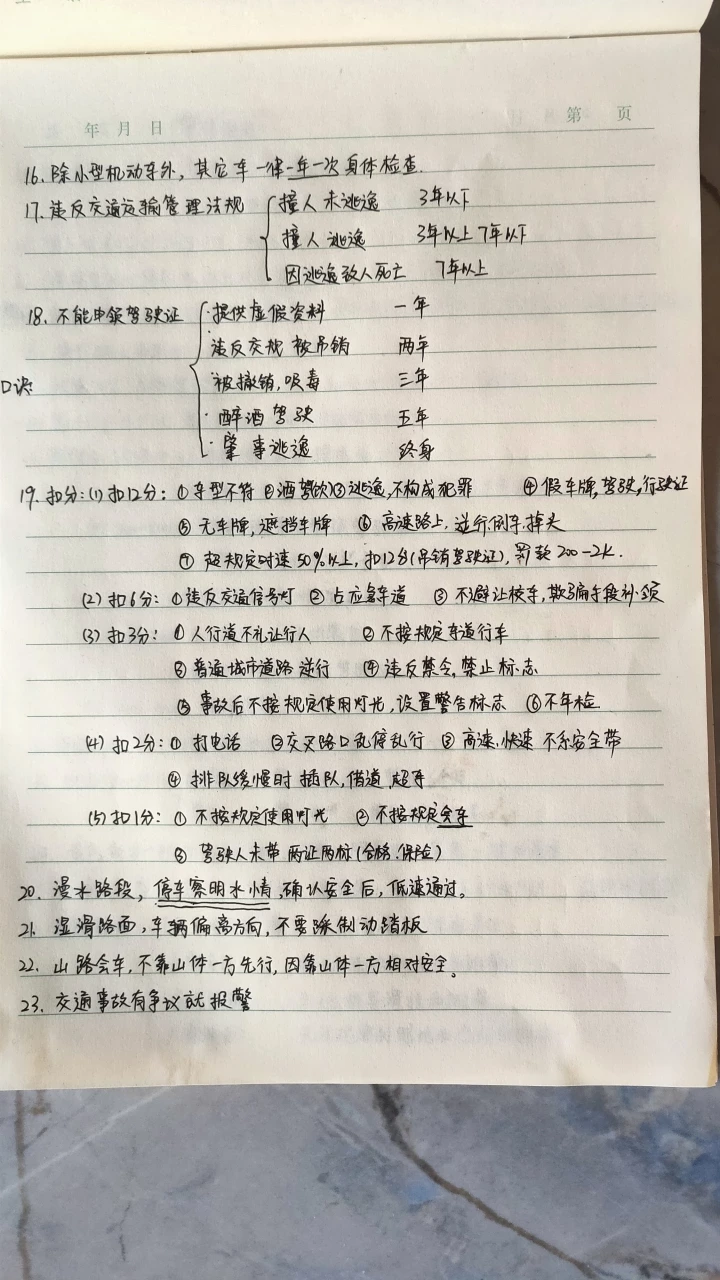 年 月 日 第 页
16. 除小型机动车外, 其它车一律一年一次身体检查.
17. 违反交通运输管理法规 撞人未逃逸 3年以下
撞人逃逸 3年以上7年以下
因逃逸致人死亡 7年以上
18. 不能申领驾驶证 ·提供虚假资料 一年
·违反交规 被吊销 两年
口诀: ·被撤销,吸毒 三年
·醉酒驾驶 五年
·肇事逃逸 终身
19. 扣分:(1) 扣12分: ①车型不符 ②酒驾(饮) ③逃逸,不构成犯罪 ④假车牌,驾驶,行驶证
⑤ 无车牌,遮挡车牌 ⑥ 高速路上,逆行,倒车,掉头
⑦ 超规定时速50%以上,扣12分(吊销驾驶证),罚款200-2K.
(2) 扣6分: ①违反交通信号灯 ② 占应急车道 ③ 不避让校车,欺骗手段补领
(3) 扣3分: ① 人行道不礼让行人 ② 不按规定车道行车
③ 普通城市道路逆行 ④ 违反禁令,禁止标志
⑤ 事故后不按规定使用灯光,设置警告标志 ⑥不年检
(4) 扣2分: ① 打电话 ②交叉路口乱停乱行 ③ 高速.快速 不系安全带
④ 排队缓慢时 插队,借道,超车
(5) 扣1分: ① 不按规定使用灯光 ② 不按规定会车
③ 驾驶人未带两证两标(合格.保险)
20. 漫水路段, 停车察明水情,确认安全后,低速通过。
21. 湿滑路面,车辆偏离方向,不要踩制动踏板
22. 山路会车,不靠山体一方先行,因靠山体一方相对安全。
23. 交通事故有争议就报警